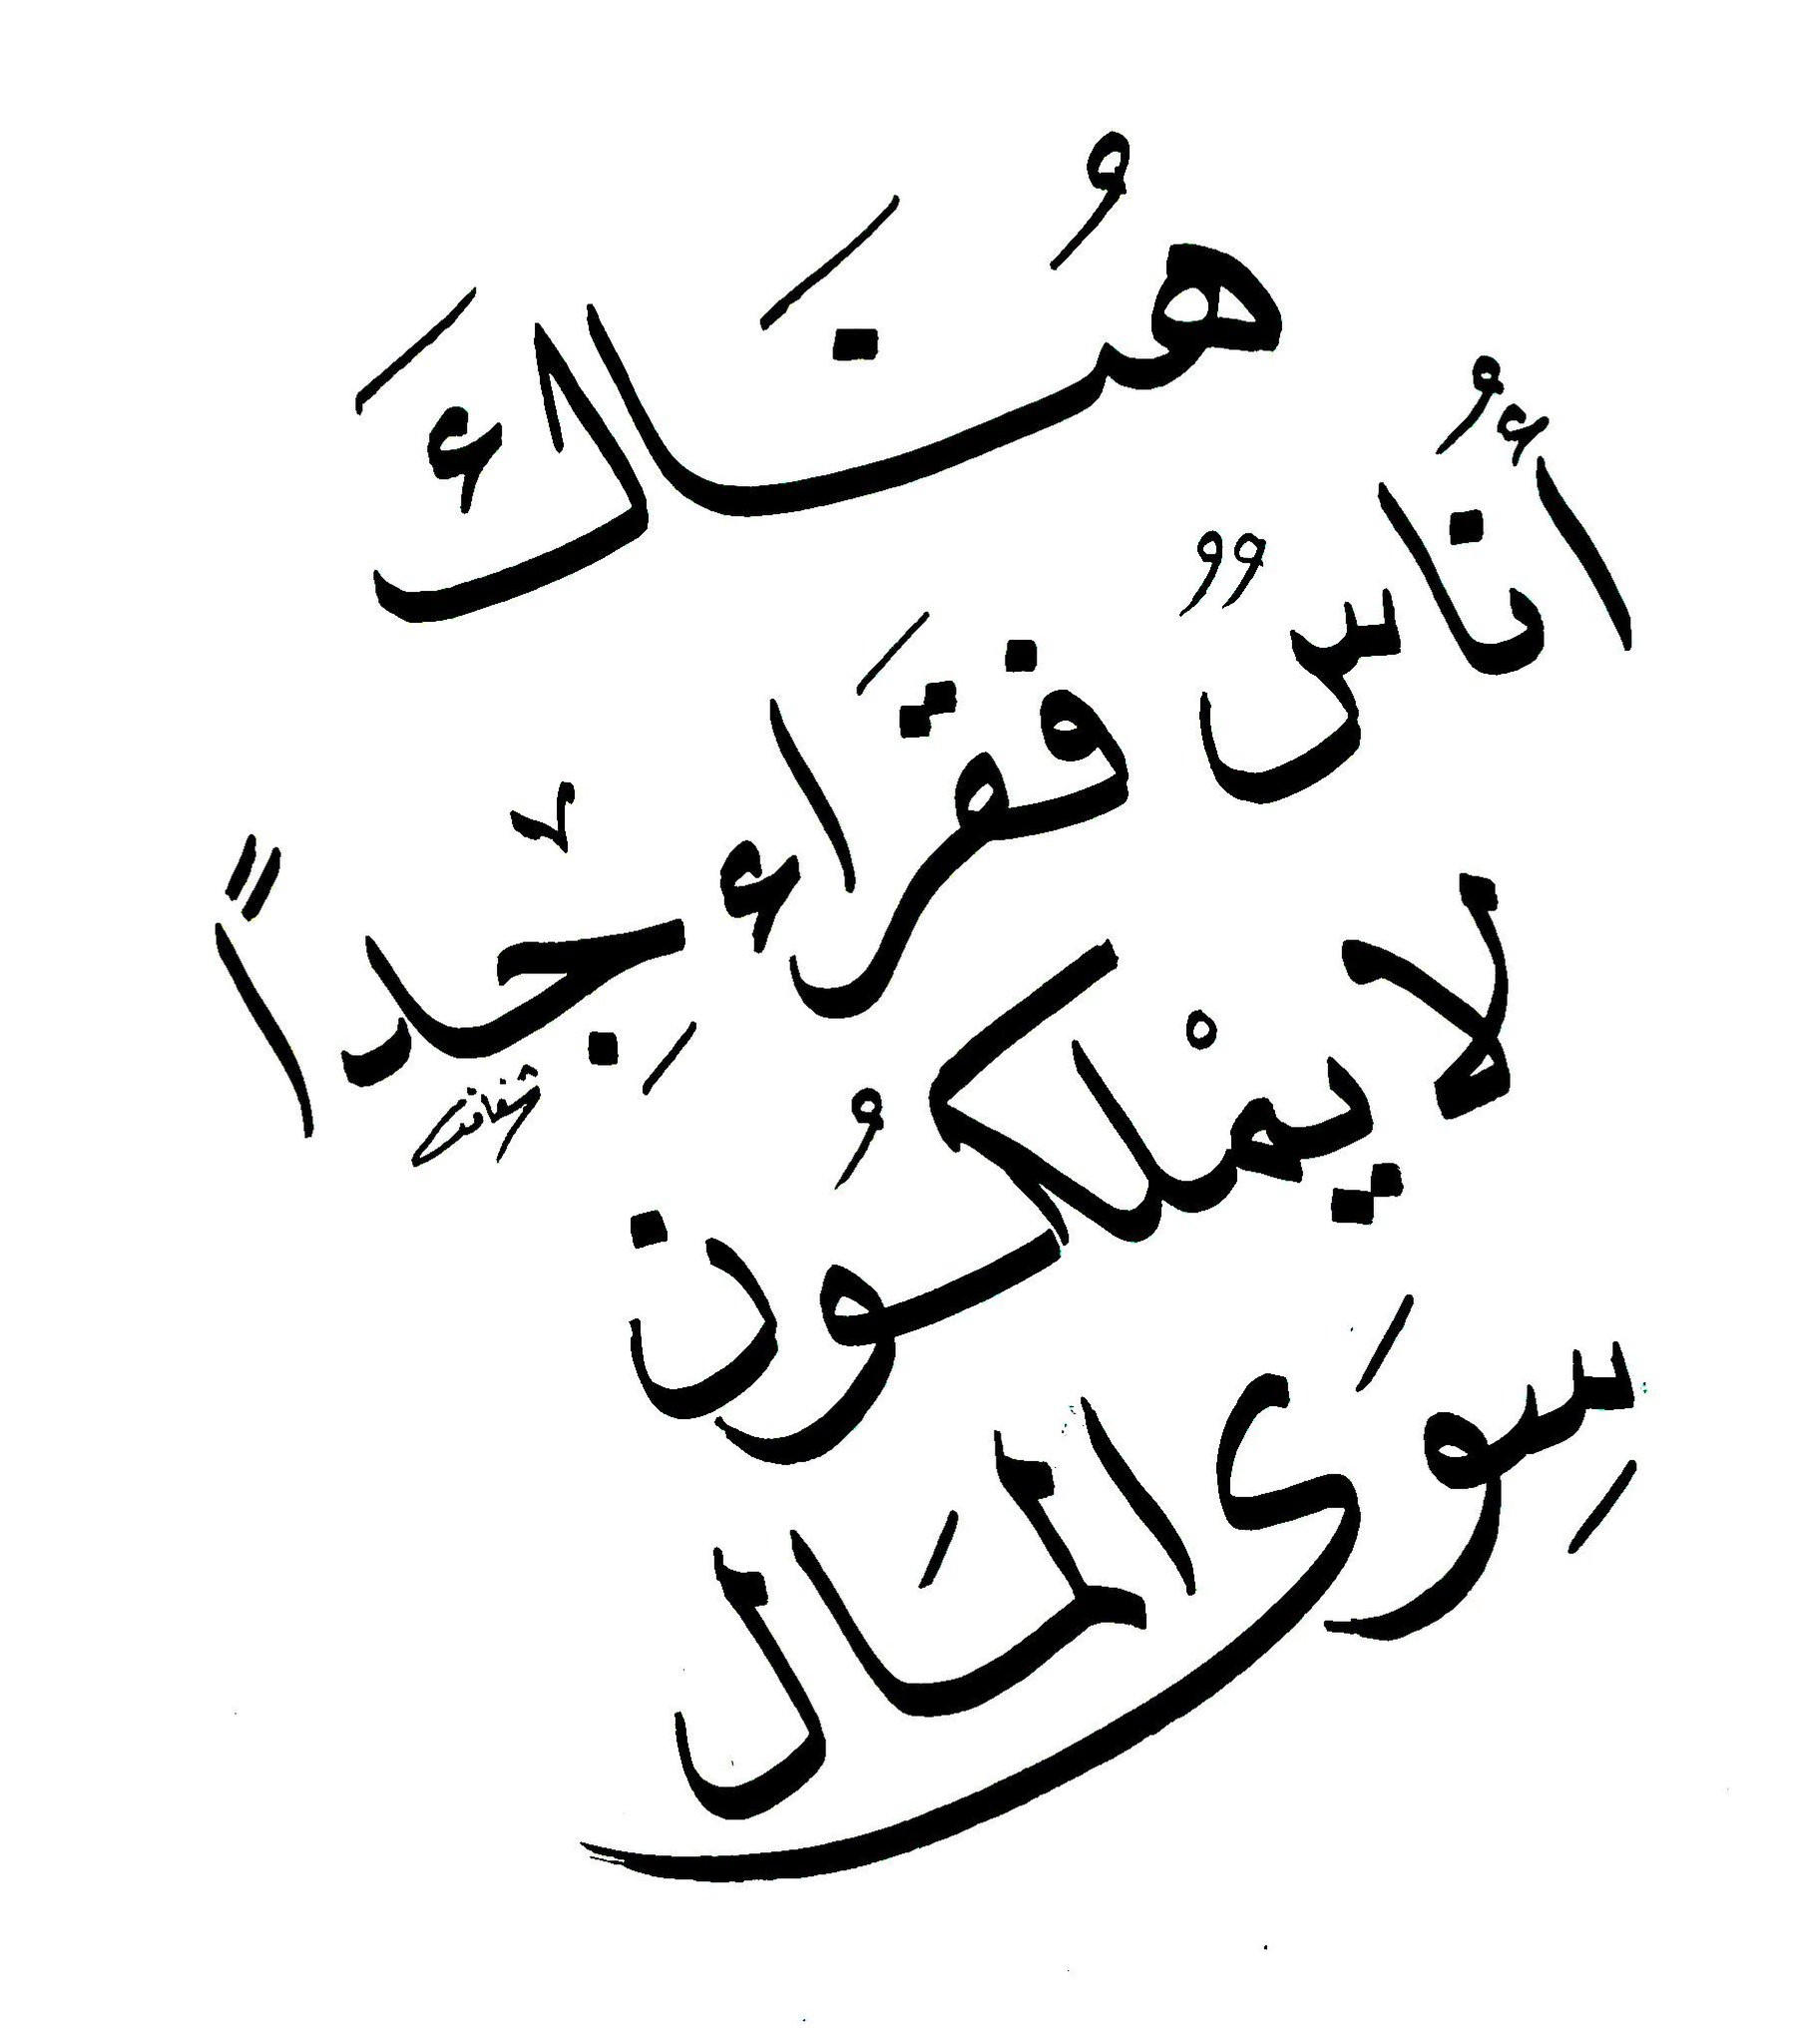 هُنَاكَ
أُنَاسٌ فقَراء جِداً
لا يمْلكُون
سِوَى المَال